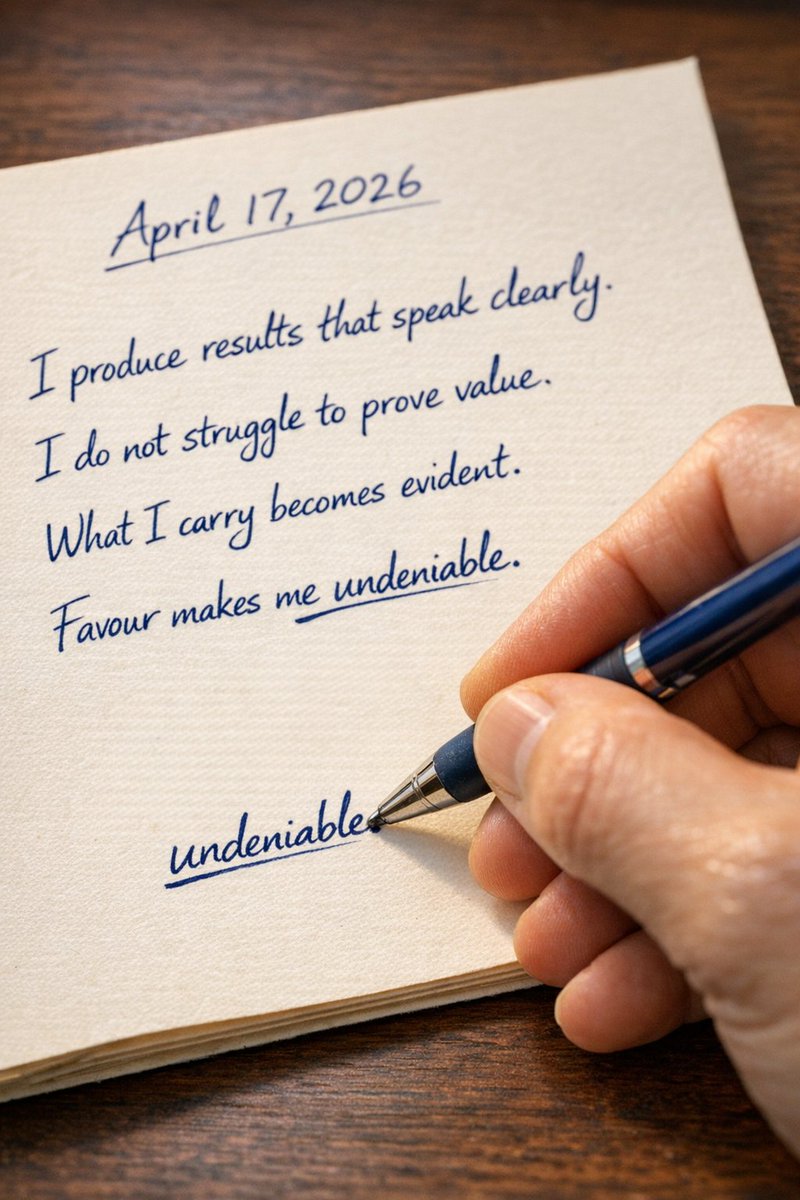 April 17, 2026
I produce results that speak clearly.
I do not struggle to prove value.
What I carry becomes evident.
Favour makes me undeniable.
undeniable.